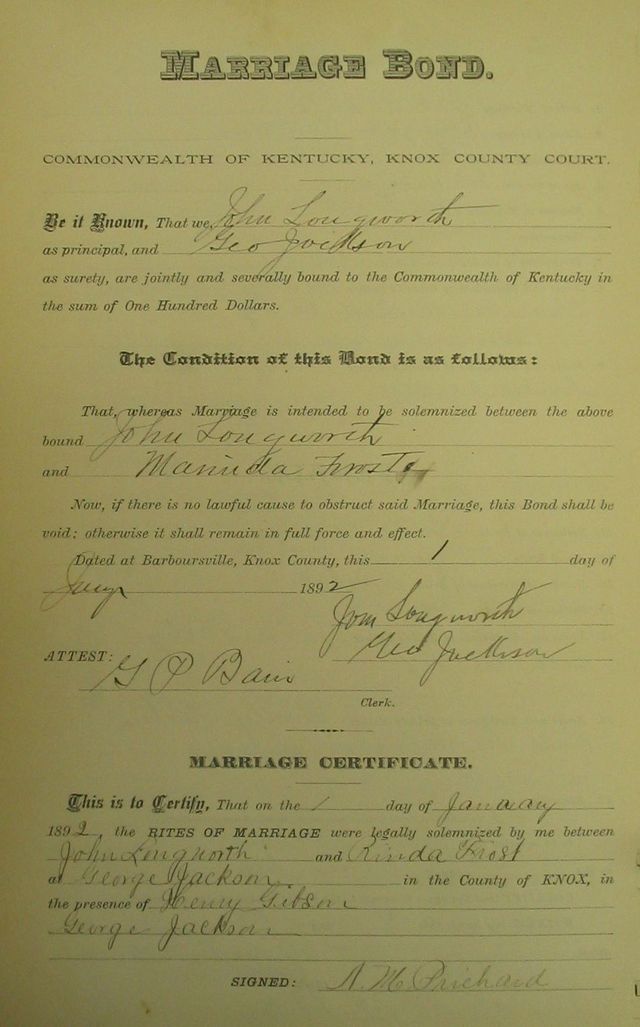 MARRIAGE BOND.
COMMONWEALTH OF KENTUCKY, KNOX COUNTY COURT.
Be it Known, That we, John Longworth
as principal, and Geo Jackson
as surety, are jointly and severally bound to the Commonwealth of Kentucky in
the sum of One Hundred Dollars.
The Condition of this Bond is as follows:
That, whereas Marriage is intended to be solemnized between the above
bound John Longworth
and Marinda Frost
Now, if there is no lawful cause to obstruct said Marriage, this Bond shall be
void; otherwise it shall remain in full force and effect.
Dated at Barboursville, Knox County, this 1 day of
1892
Longworth
Geo Jackson
ATTEST:
G P Bain
Clerk.
MARRIAGE CERTIFICATE.
This is to Certify, That on the 1 day of Janauay
1892, the RITES OF MARRIAGE were legally solemnized by me between
John Longworth and Rinda Frost
at George Jackson. in the County of KNOX, in
the presence of Henry Gibson
George Jackson
SIGNED: A M Prichard